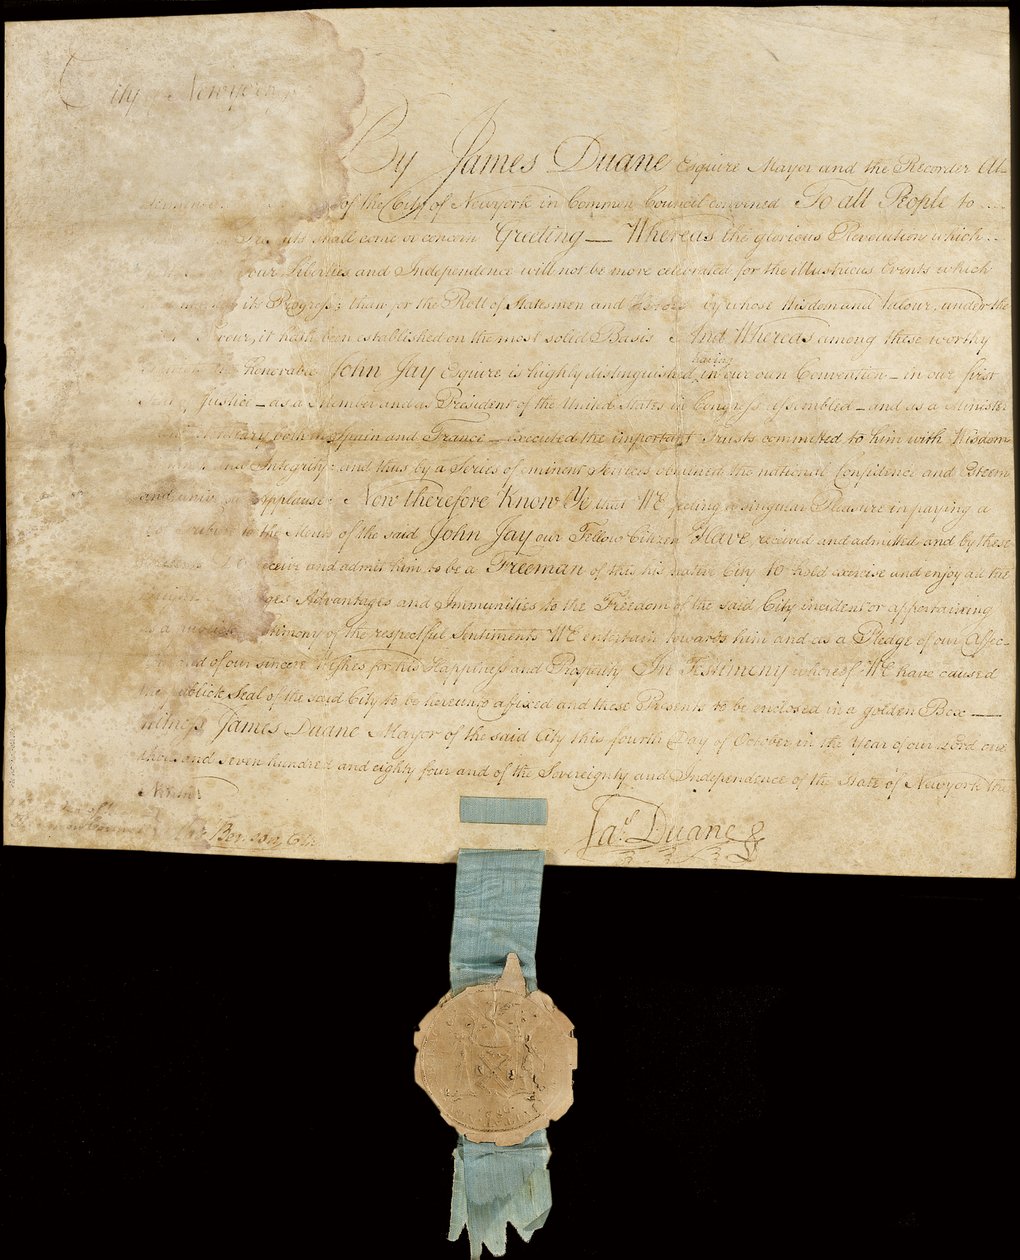 City of New york
By James Duane Esquire Mayor and the Recorder Al-
of the City of Newyork in Common Council convened To all People to
shall come or concern Greeting — Whereas the glorious Revolution which
our Liberties and Independence will not be more celebrated for the illustrious Events which
its Progress; than for the Roll of Statesmen and by whose Wisdom and Valour, under the
it hath been established on the most solid Basis And Whereas among these worthy
Honorable John Jay Esquire is highly distinguished having in our own Convention — in our first
Justice — as a Member and as President of the United States in Congress assembled — and as a Minister
both in Spain and France — executed the important Trusts committed to him with Wisdom
and Integrity: and thus by a Series of eminent Services obtained the national Confidence and Esteem
and Applause: Now therefore Know Ye that WE feeling a singular Pleasure in paying a
to the Merits of the said John Jay our Fellow Citizen Have received and admitted and by these
Do receive and admit him to be a Freeman of this his native City to hold exercise and enjoy all the
Advantages and Immunities to the Freedom of the said City incident or appertaining
as a publick Testimony of the respectful Sentiments WE entertain towards him and as a Pledge of our Affec-
and of our sincere Wishes for his Happiness and Prosperity In Testimony whereof WE have caused
the publick Seal of the said City to be hereunto affixed and these Presents to be enclosed in a golden Box —
Witness James Duane Mayor of the said City this fourth Day of October in the Year of our Lord one
thousand seven hundred and eighty four and of the Sovereignty and Independence of the State of Newyork the
Ninth
Benson, Clk
Jas. Duane